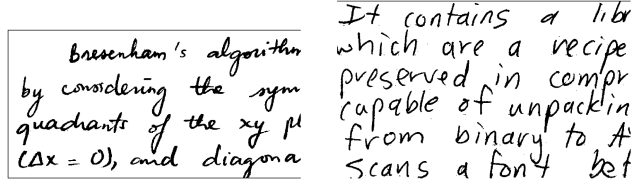 Bresenham's algorithm
by considering the sym
quadrants of the xy pl
(Δx = 0), and diagona
It contains a libr
which are a recipe
preserved in compr
capable of unpackin
from binary to A
scans a font bet